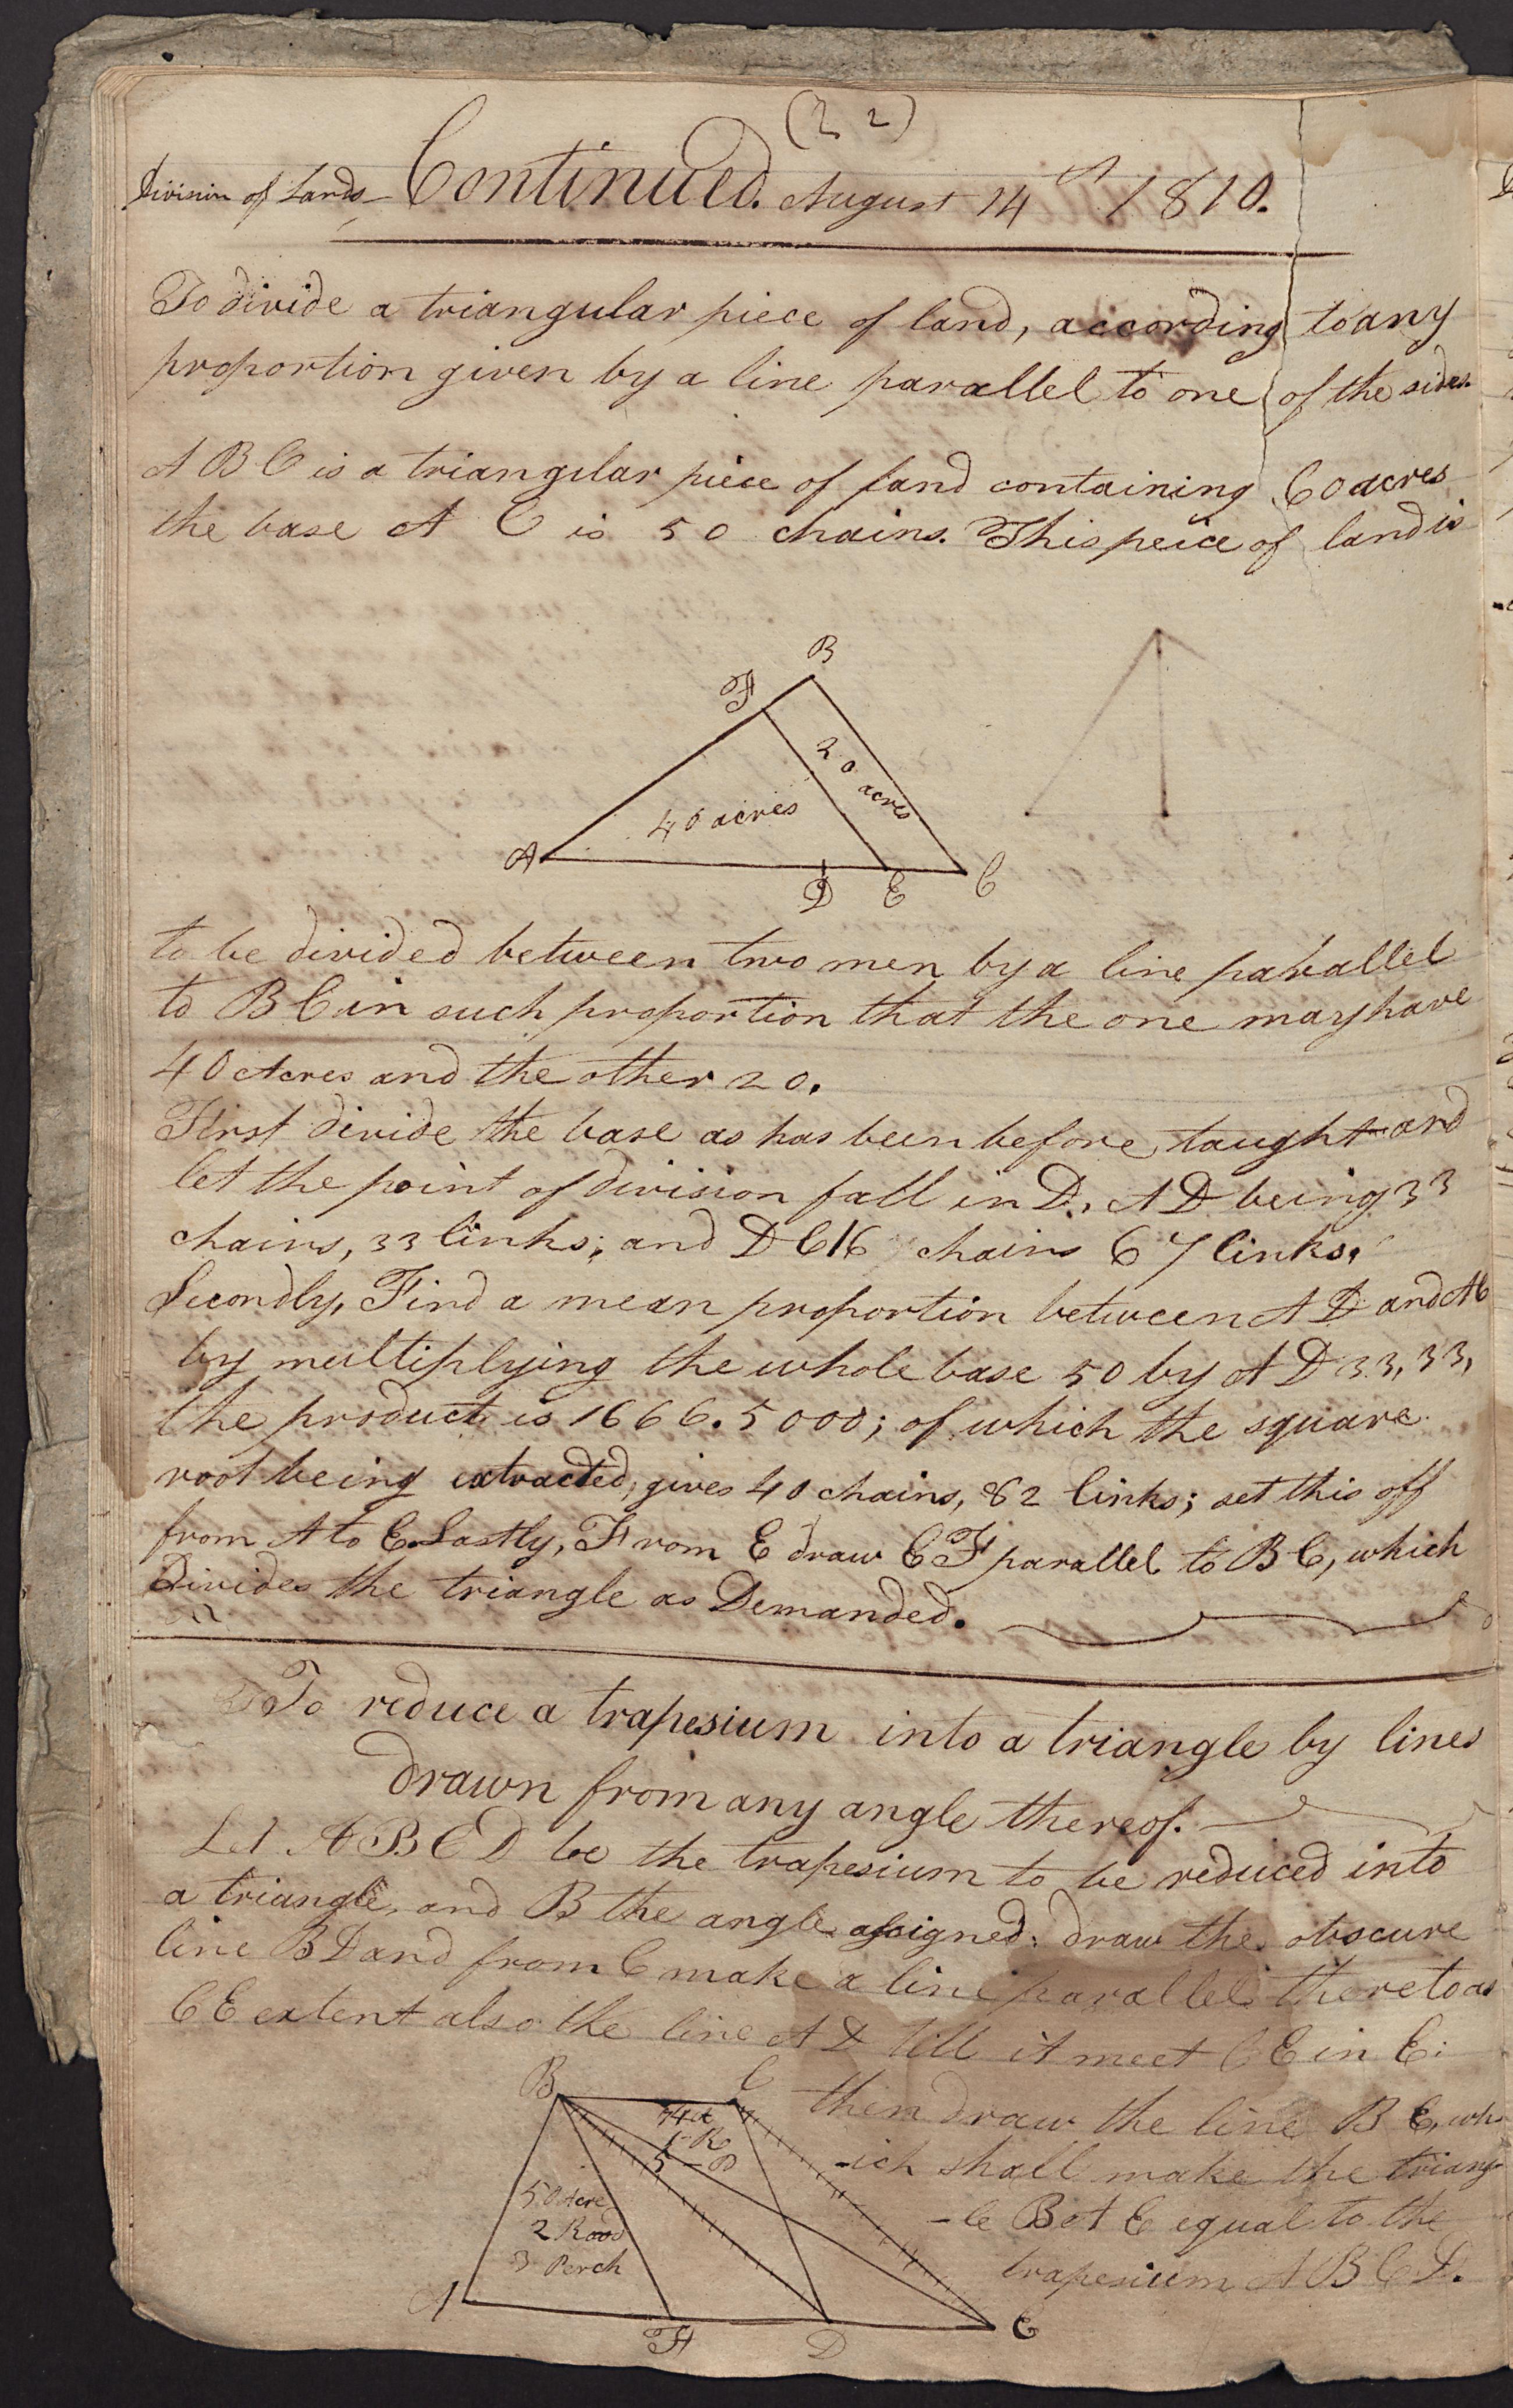 (22)
Division of Lands - Continued. August 14th 1810.
To divide a triangular piece of land, according to any
proportion given by a line parallel to one of the sides.
A B C is a triangular piece of land containing 60 acres
the base A C is 50 chains. This peice of land is
B
F
20 acres
40 acres
A
D E C
to be divided between two men by a line parallel
to B C in such proportion that the one may have
40 Acres and the other 20.
First divide the base as has been before taught and
let the point of division fall in D, A D being 33
chains, 33 links; and D C 16 chains 67 links.
Secondly, Find a mean proportion between A D and A C
by multiplying the whole base 50 by A D 33,33,
the product is 1666.5000; of which the square
root being extracted, gives 40 chains, 82 links; set this off
from A to E. Lastly, From E draw E F parallel to B C, which
Divides the triangle as Demanded.
To reduce a trapesium into a triangle by lines
drawn from any angle thereof.
Let A B C D be the trapesium to be reduced into
a triangle, and B the angle assigned: draw the obscure
line B D and from C make a line parallel thereto as
C E extent also the line A D till it meet C E in E:
then draw the line B E, wh
-ich shall make the triang-
-le B A E equal to the
trapesium A B C D.
B C
1 - R
5 - P
50 Acre
2 Rood
3 Perch
A
F D E